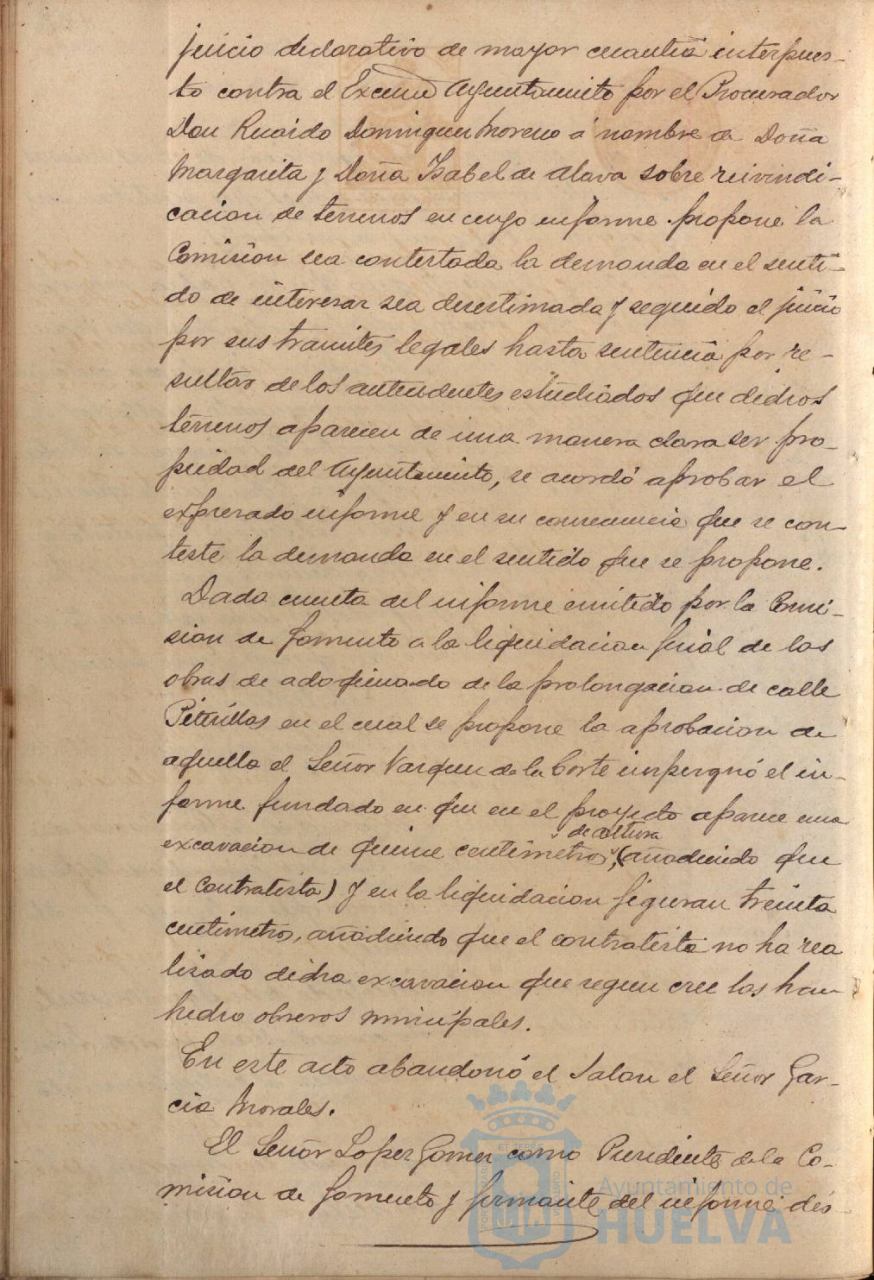 juicio declarativo de mayor cuantia interpues-
to contra el Excmo Ayuntamiento por el Procurador
Don Ricardo Dominguez Moreno á nombre de Doña
Margarita y Doña Isabel de Alava sobre reivindi-
cacion de terrenos en cuyo informe propone la
Comision sea contestada la demanda en el senti-
do de interesar sea desestimada y seguido el juicio
por sus tramites legales hasta sentencia por re-
sultar de los antecedentes estudiados que dichos
terrenos aparecen de una manera clara ser pro-
piedad del Ayuntamiento, se acordó aprobar el
expresado informe y en su consecuencia que se con-
teste la demanda en el sentido que se propone.
Dada cuenta del informe emitido por la Comi-
sion de fomento a la liquidacion final de las
obras de adoquinado de la prolongacion de calle
Puterillas en el cual se propone la aprobacion de
aquella el Señor Vazquez de la Corte impugnó el in-
forme fundado en que en el proyecto aparece una
de altura
excavacion de quince centimetros, (añadiendo que
el contratista) y en la liquidacion figuran treinta
centimetros, añadiendo que el contratista no ha rea
lisado dicha excavacion que segun cree las han
hecho obreros municipales.
En este acto abandonó el Salon el Señor Gar-
cia Morales.
El Señor Lopez Gomez como Presidente de la Co-
mision de fomento y firmante del informe des-
Ayuntamiento de
HUELVA